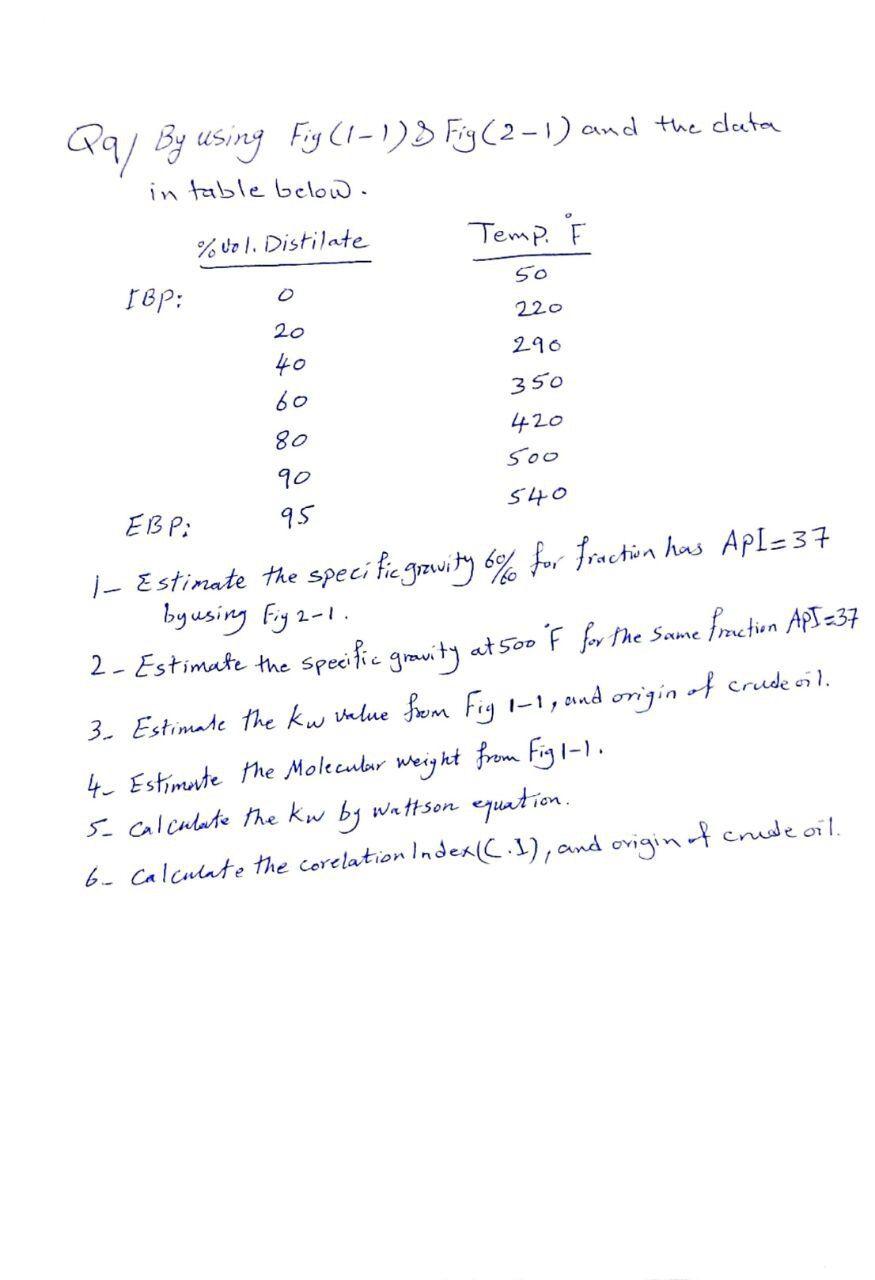 Q9/ By using Fig (1-1) & Fig (2-1) and the data
in table below.
% Vol. Distilate Temp. °F
IBP: 0 50
20 220
40 290
60 350
80 420
90 500
EBP: 95 540
1- Estimate the specific gravity 60/60 for fraction has API=37
by using Fig 2-1.
2- Estimate the specific gravity at 500 °F for the same fraction API=37
3- Estimate the kw value from Fig 1-1, and origin of crude oil.
4- Estimate the Molecular weight from Fig 1-1.
5- Calculate the kw by Wattson equation.
6- Calculate the corelation Index (C.I), and origin of crude oil.